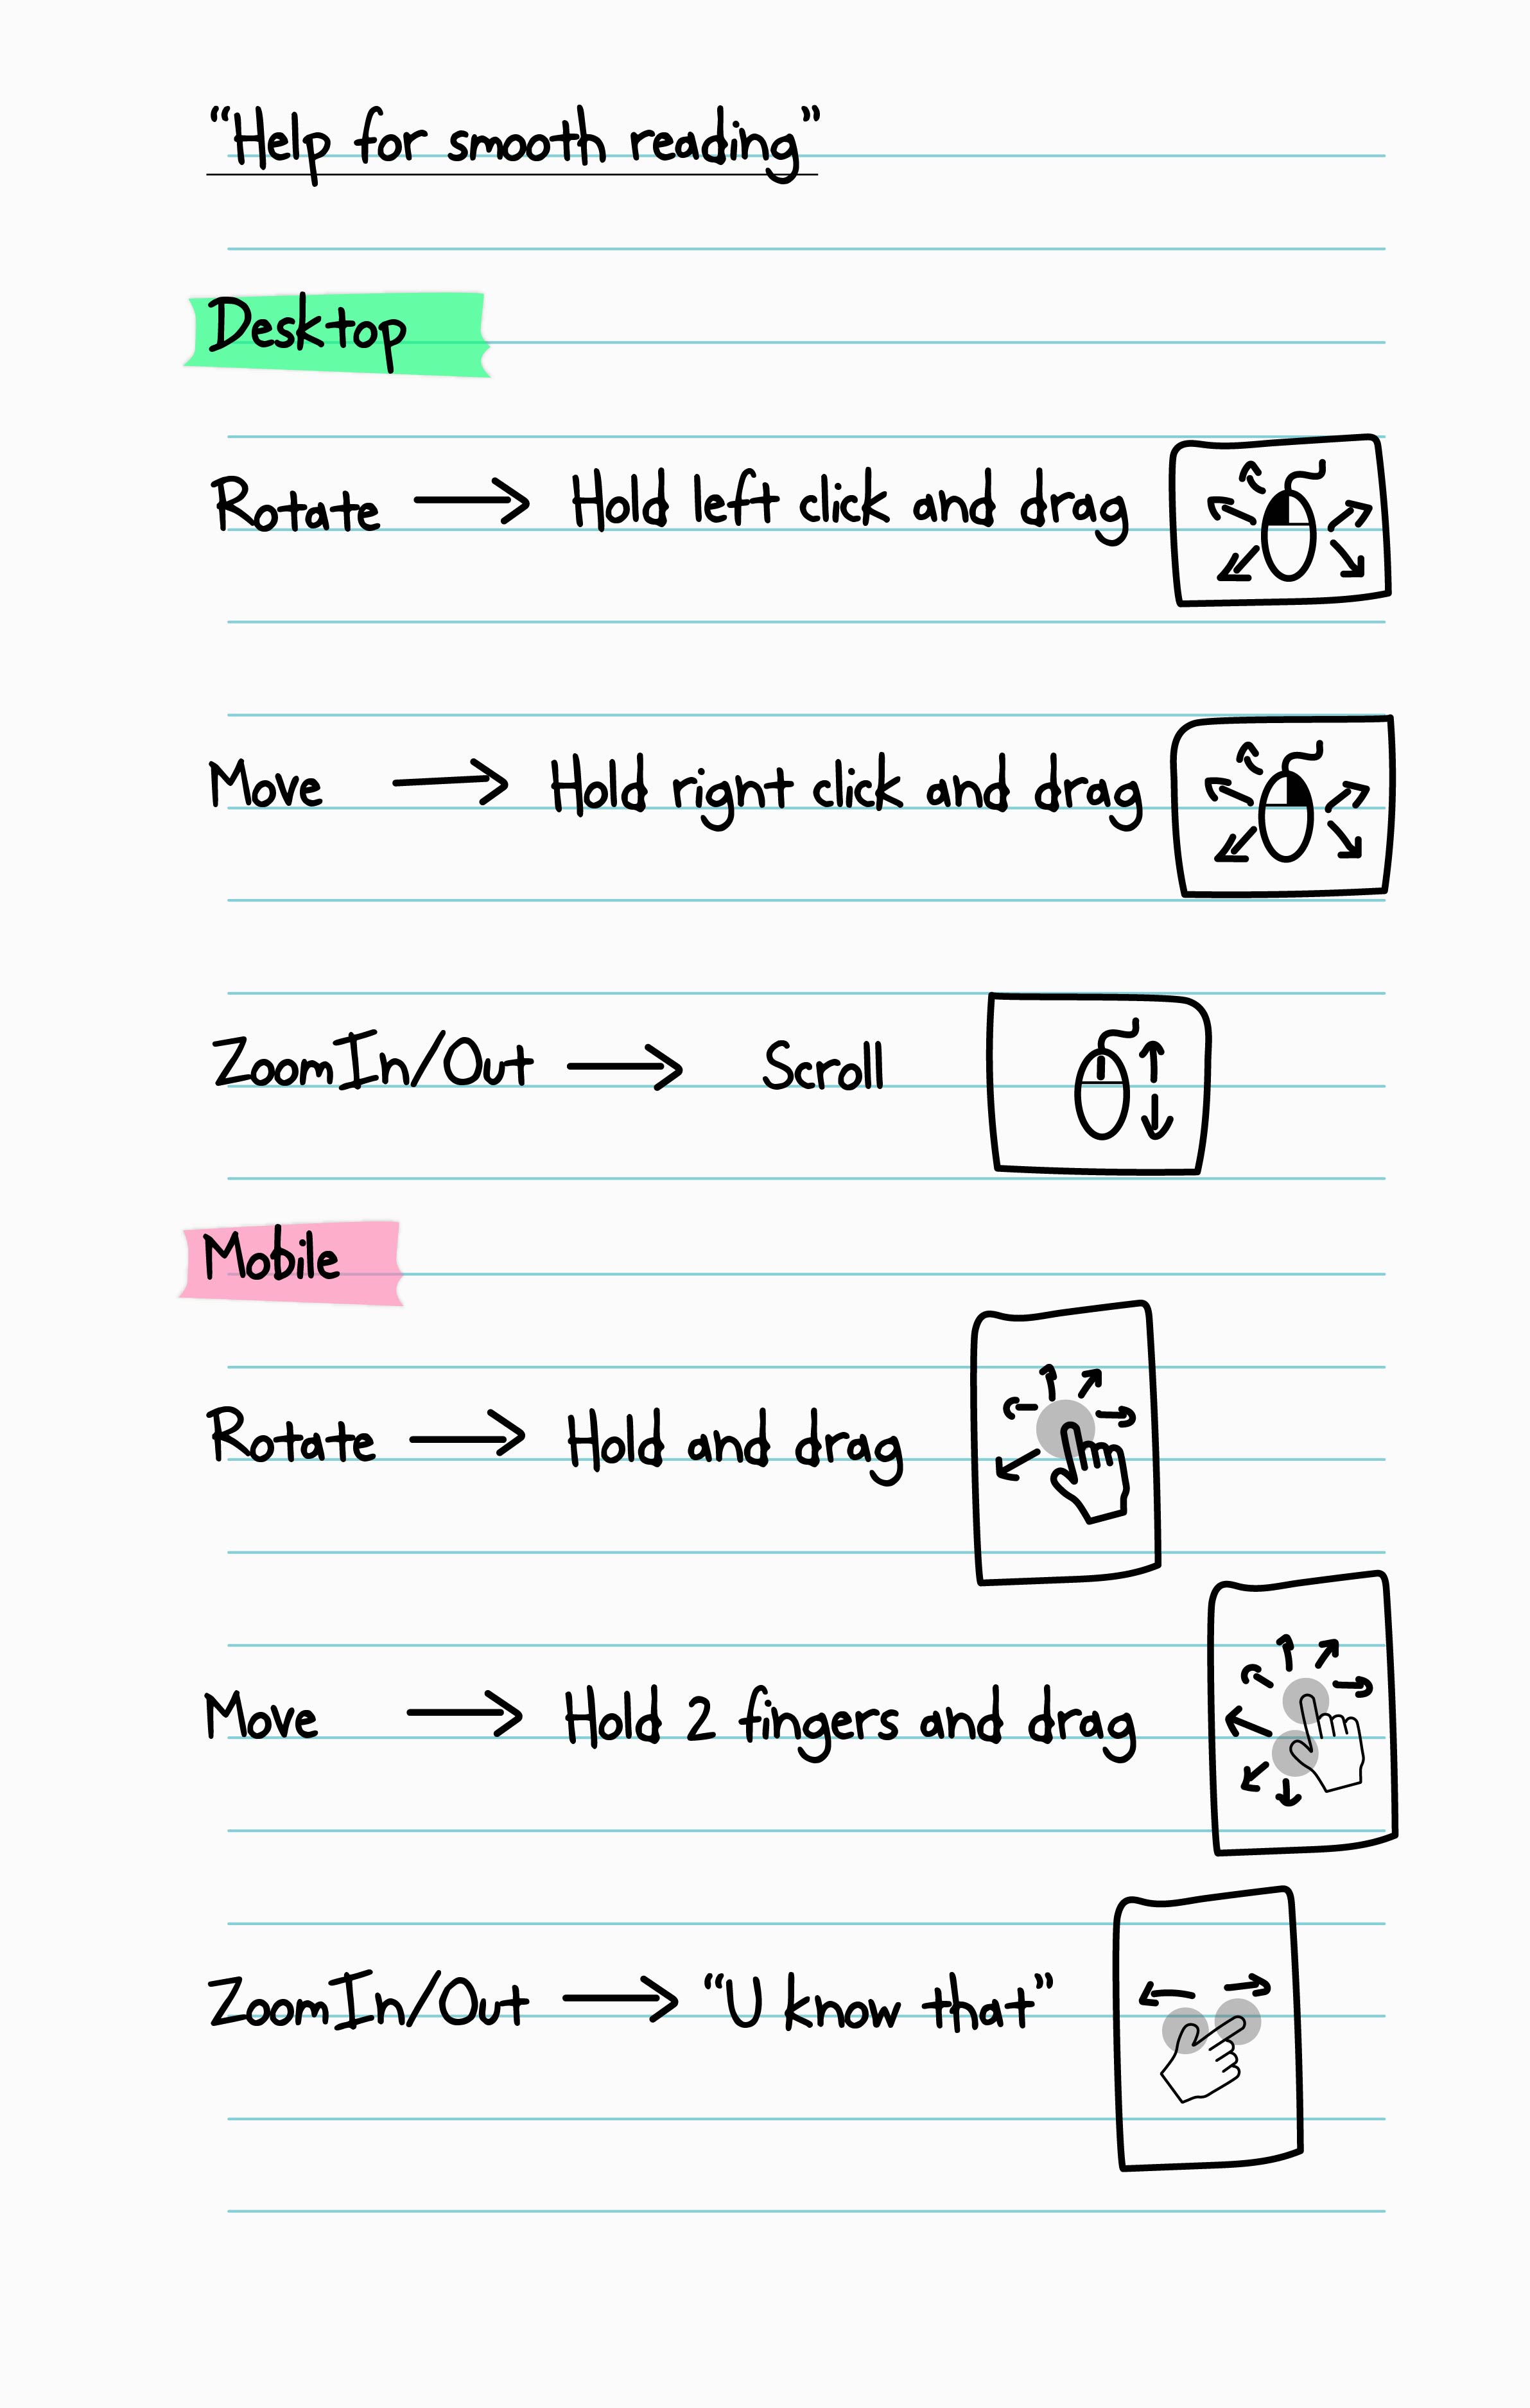 “Help for smooth reading”
Desktop
Rotate → Hold left click and drag
Move → Hold right click and drag
Zoom In/Out → Scroll
Mobile
Rotate → Hold and drag
Move → Hold 2 fingers and drag
Zoom In/Out → “U know that”